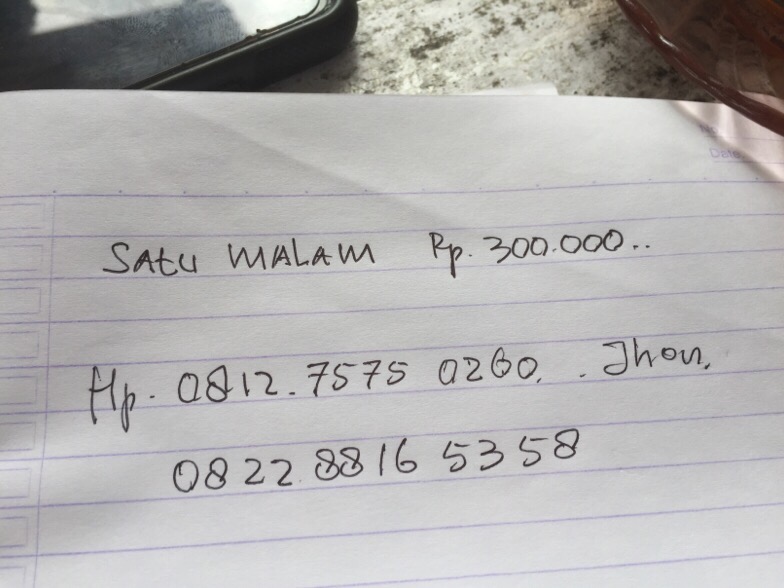 Date
SAtu MALAM Rp. 300.000..
Hp. 0812.7575 0260. . Jhon.
0822 8816 5358